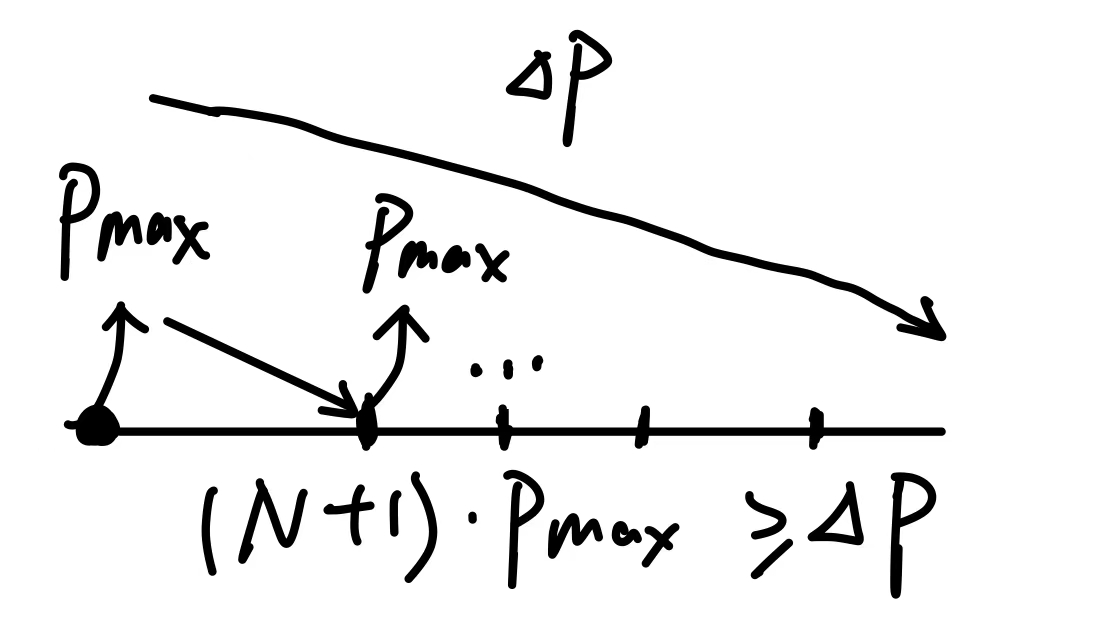 ΔP
Pmax
Pmax
...
(N+1)·Pmax ≥ΔP